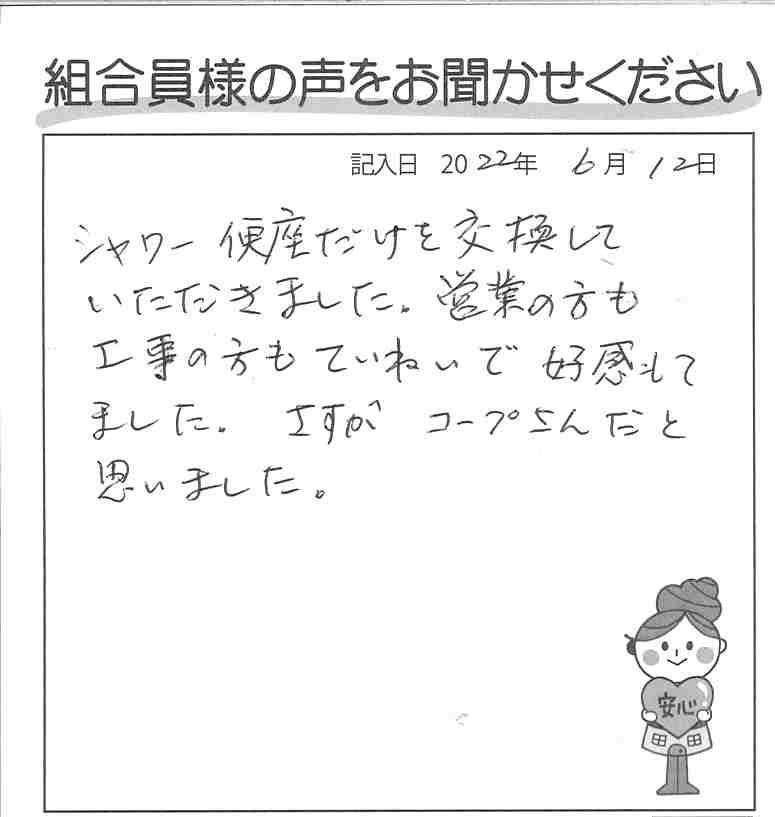 組合員様の声をお聞かせください
記入日 2022年 6月 12日
シャワー便座だけを交換して
いただきました。営業の方も
工事の方もていねいで 好感もて
ました。 さすが コープさんだと
思いました。
安心